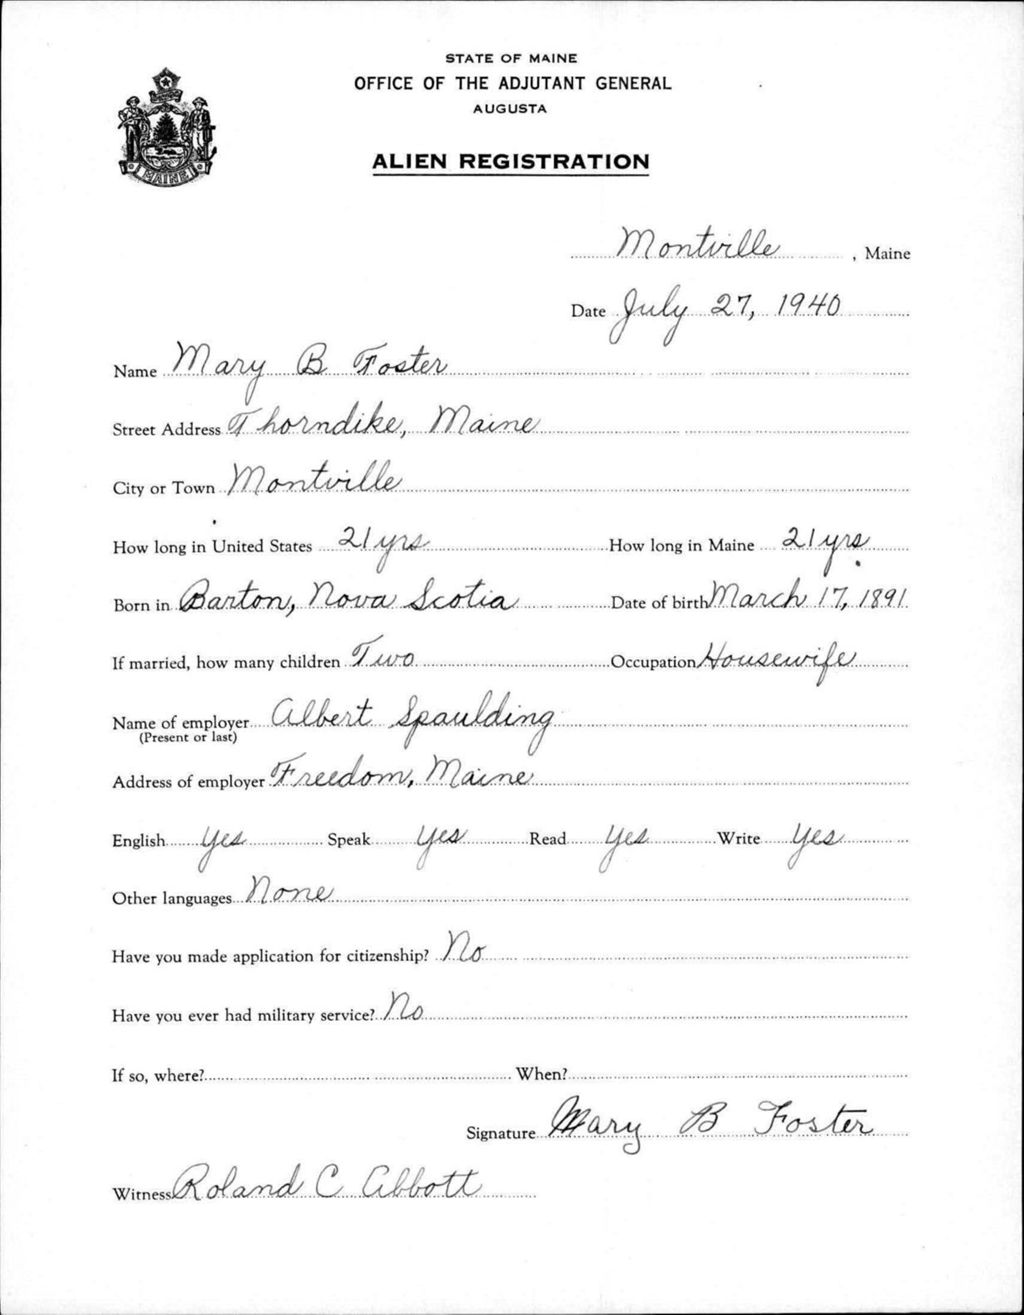 STATE OF MAINE
OFFICE OF THE ADJUTANT GENERAL
AUGUSTA
MAINE
ALIEN REGISTRATION
Montville, Maine
Date July 27, 1940
Name Mary B Foster
Street Address Thorndike, Maine
City or Town Montville
How long in United States 21 yrs How long in Maine 21 yrs
Born in Barton, Nova Scotia Date of birth March 17, 1891
If married, how many children Two Occupation Housewife
Name of employer Albert Spaulding
(Present or last)
Address of employer Freedom, Maine
English Yes Speak Yes Read Yes Write Yes
Other languages None
Have you made application for citizenship? No
Have you ever had military service? No
If so, where? When?
Signature Mary B Foster
Witness Roland C Abbott